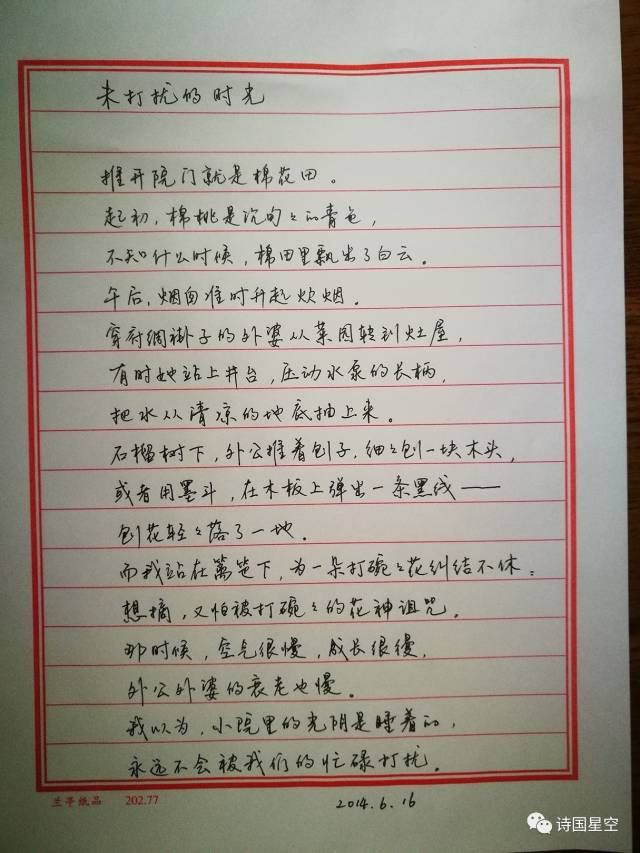 未打扰的时光
推开院门就是棉花田。
起初，棉桃是沉甸々的青色，
不知什么时候，棉田里飘出了白云。
午后，烟囱准时升起炊烟。
穿府绸褂子的外婆从菜园转到灶屋，
有时她站上井台，压动水泵的长柄，
把水从清凉的地底抽上来。
石榴树下，外公推着刨子，细々刨一块木头，
或者用墨斗，在木板上弹出一条黑线——
刨花轻々落了一地。
而我站在篱笆下，为一朵打碗々花纠结不休：
想摘，又怕被打碗々的花神诅咒。
那时候，空气很慢，成长很缓，
外公外婆的衰老也慢。
我以为，小院里的光阴是睡着的，
永远不会被我们的忙碌打扰。
兰亭纸品 202.77
2014.6.16
诗国星空